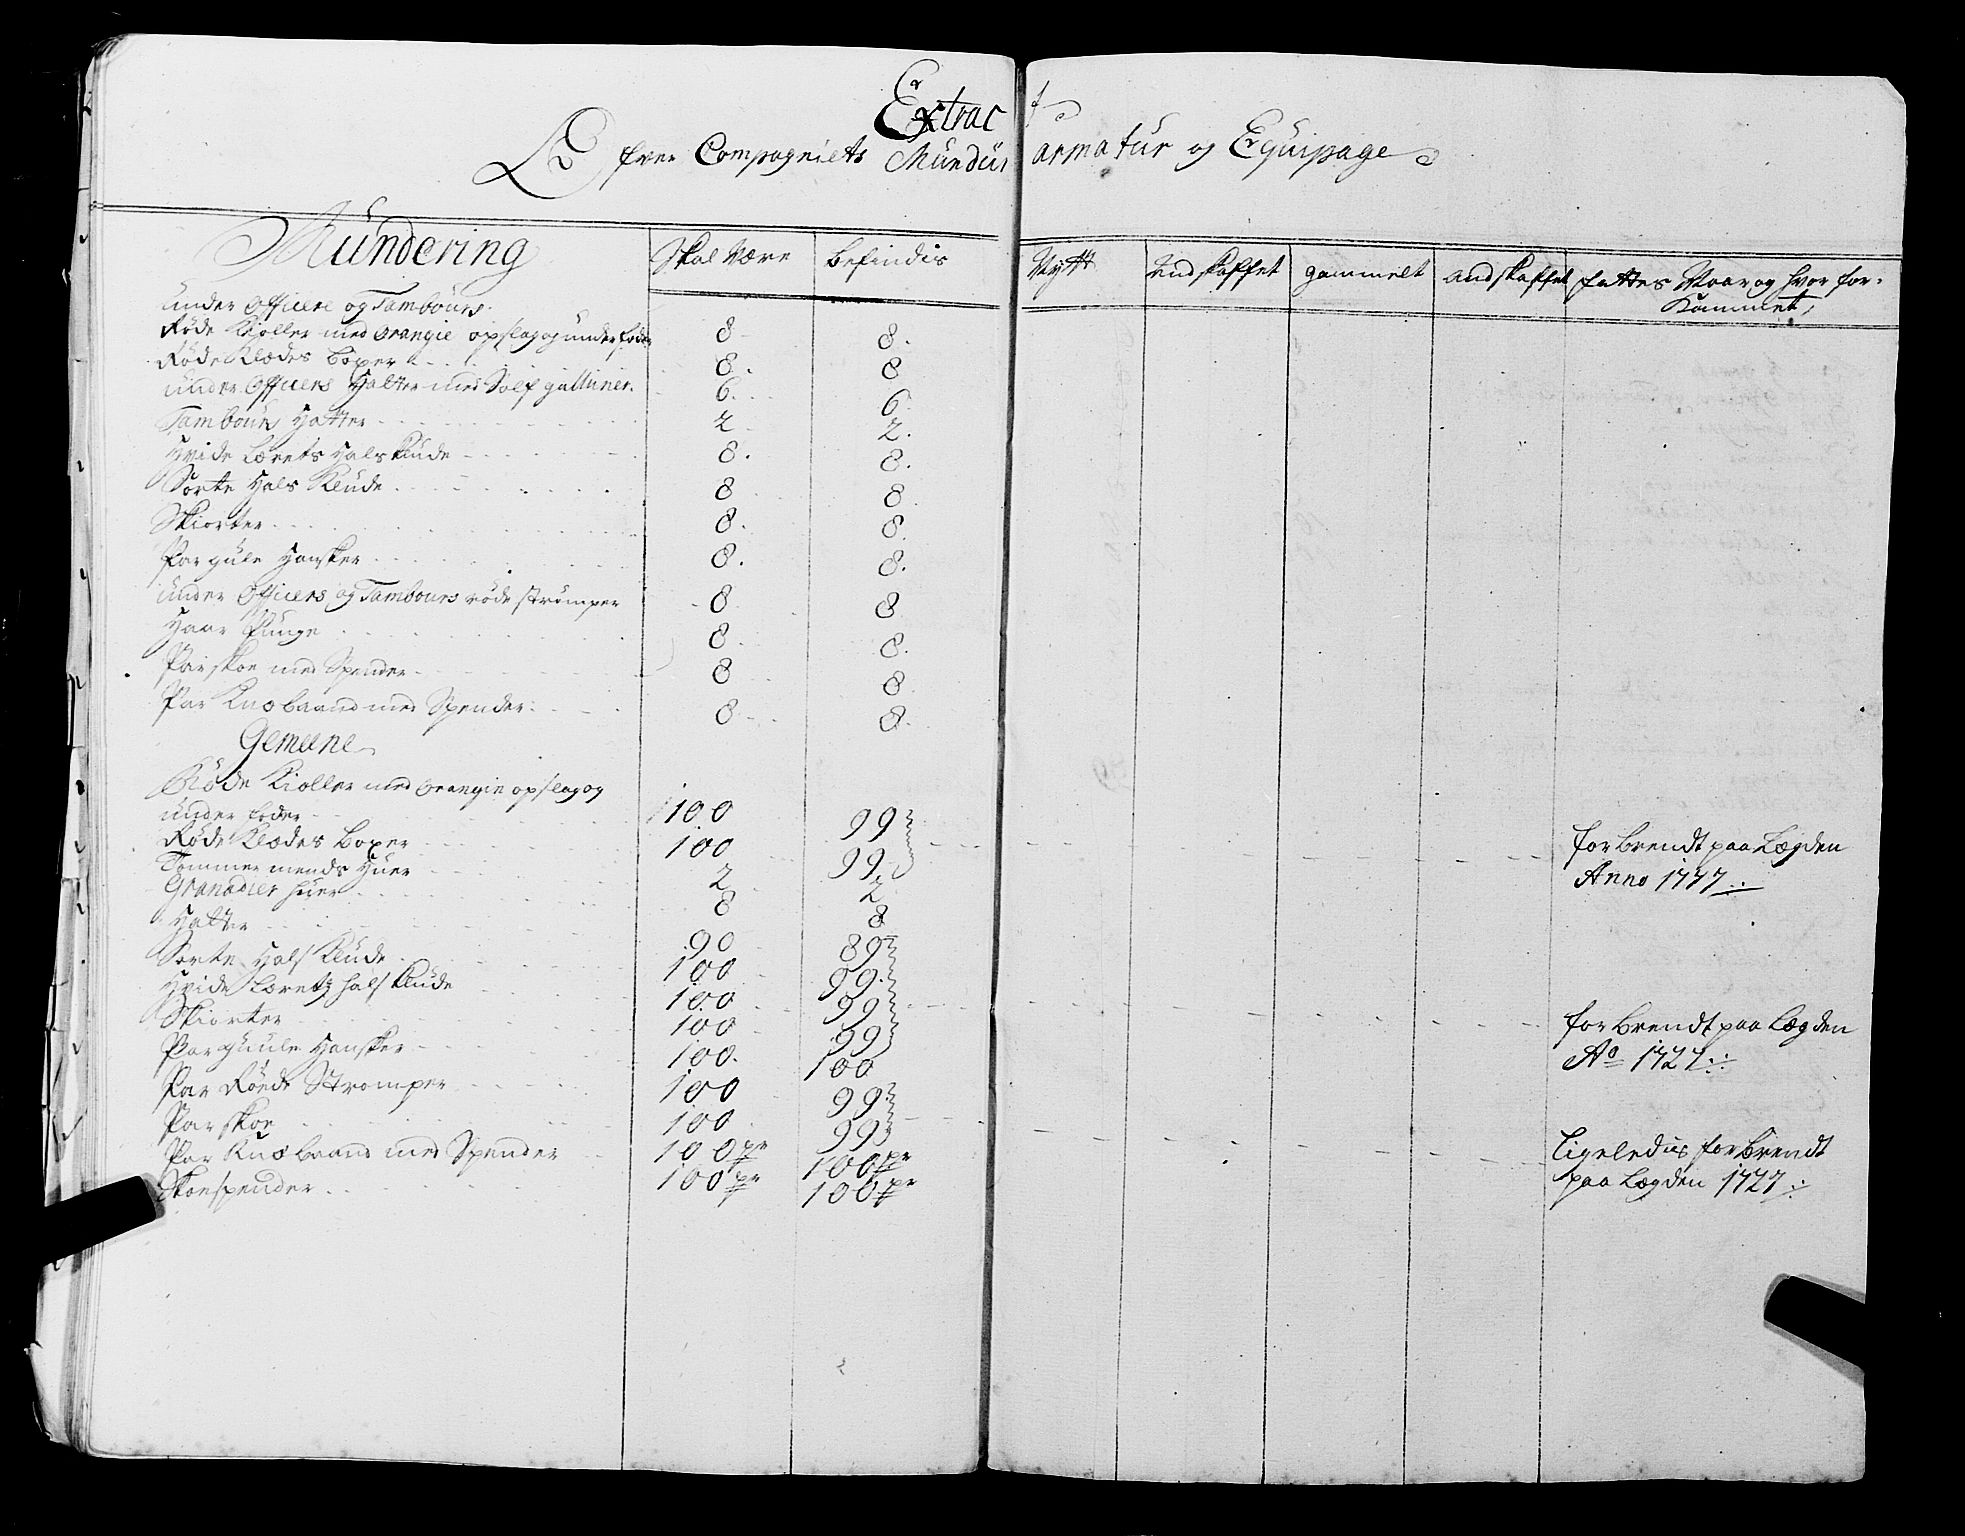 Extract
Ofver Compagniets Mundur armatur og Equipage
Mundering
Skal Være
befindis
Nytt
andskaffet
gammelt
andskaffet
fattes Naar og hvor for-
Kommet,
under Officere og Tambours.
Røde Kioller med Orangie opslag og under foder 8 8.
Røde Klædes boxer 8. 8
under Officers Hatter med Sølf galluner. 6. 6.
Tambours Hatter 2 2.
Hvide Lærets Hals Klude 8. 8.
Sorte Hals Klude 8 8
Skiorter 8. 8.
Par gule Hansker 8. 8.
under Officers og Tambours røde strømper 8 8.
Haar Punge 8. 8.
Par skoe med Spender 8 8.
Par Knæ baand med Spender 8 8.
Gemeene
Røde Kioller med orangie opslag og
under foder 100 99
Røde Klædes Boxer 100 99 for brendt paa Lægden
Tømmermends Huer 2 2 Anno 1727
Granadier huer 8 8
Hatter 90 89
Sorte Hals Klude 100 99.
Hvide Læretz hals Klude 100 99
Skiorter 100 99 for brendt paa Lægden
Par guule Hansker 100. 100 Ao 1727
Par Røede Strømper 100 99
Par skoe 100 99
Par Knæ baand med Spender 100 pr 100 pr Ligeledis for brendt
Skoespender 100 pr 100 pr paa Lægden 1727